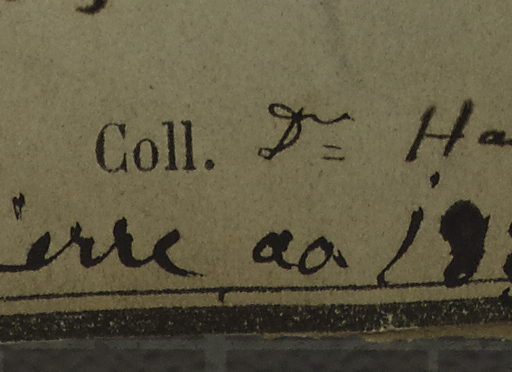 Coll. Dr Ha
ierre ao 18